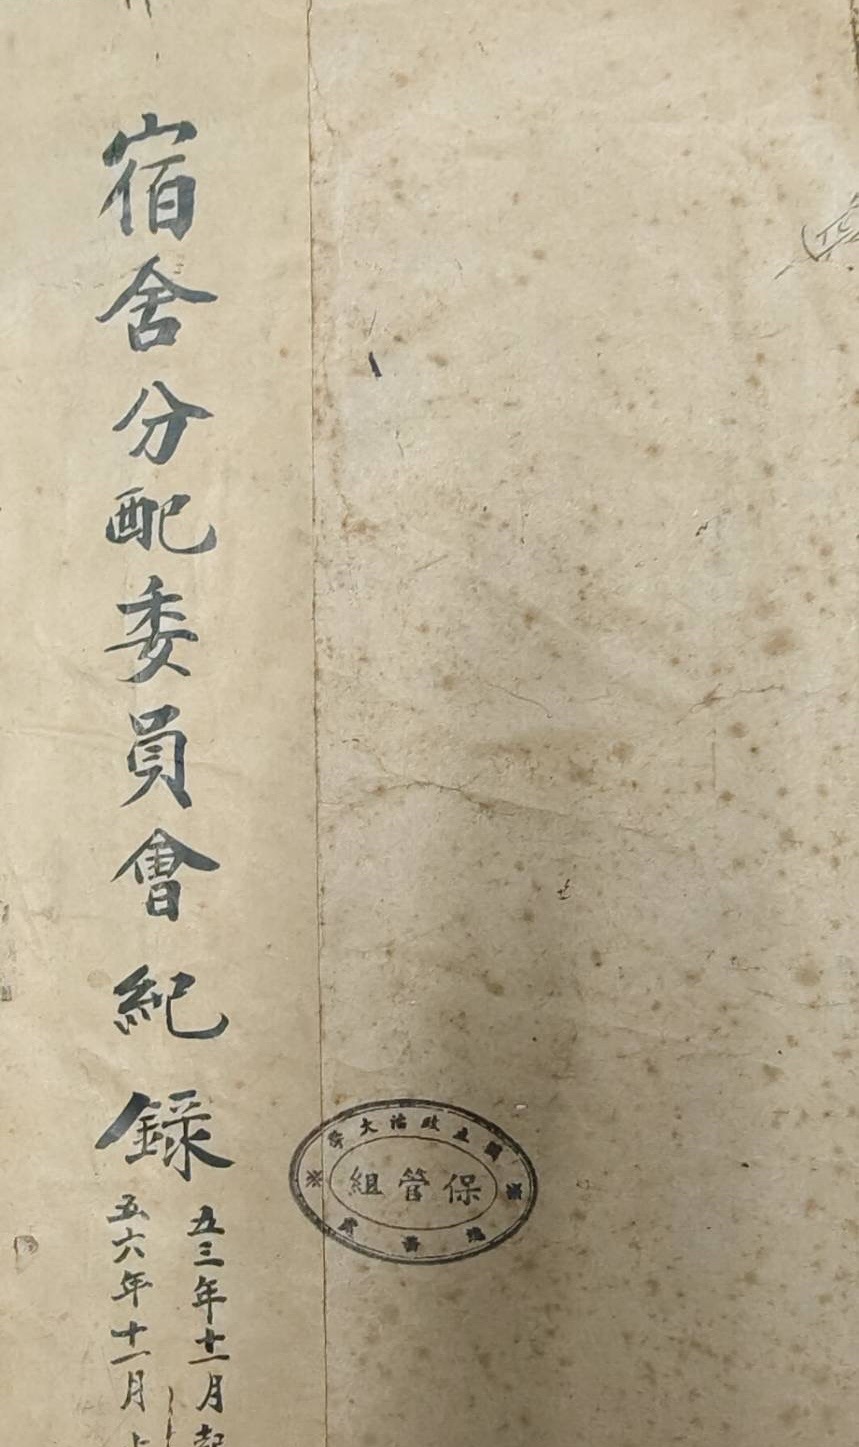 宿舍分配委員會紀錄
五三年十一月起
五六年十一月止
國立政治大學
保管組
總務處